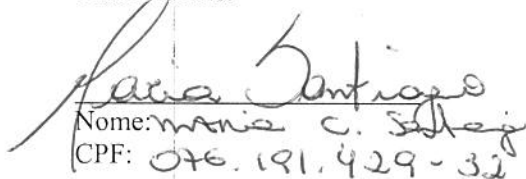 Maria Santiago
Nome: Maria C. Santiago
CPF: 076.191.429-32